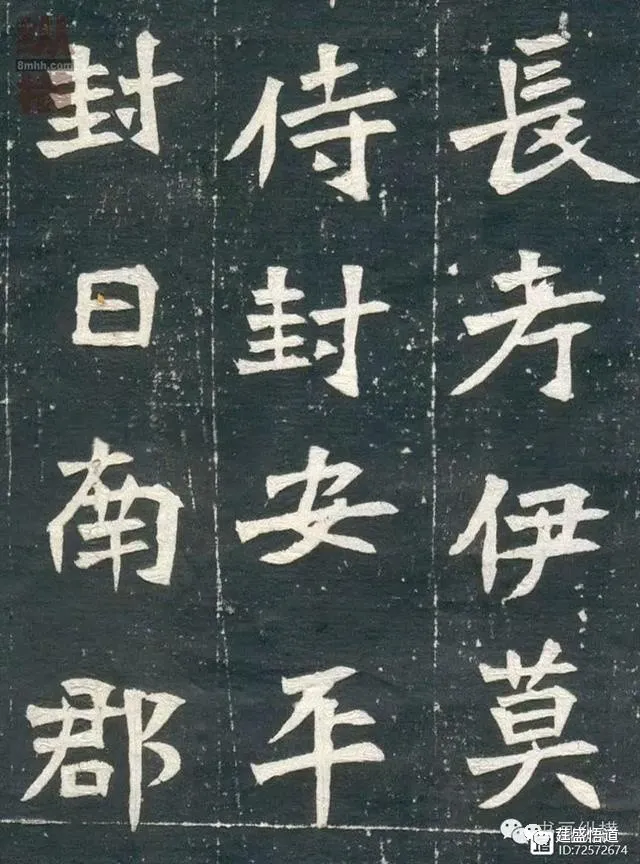 長考伊莫
侍封安平
封日南郡
8mhh.com
廷盛悟道
ID:72572674